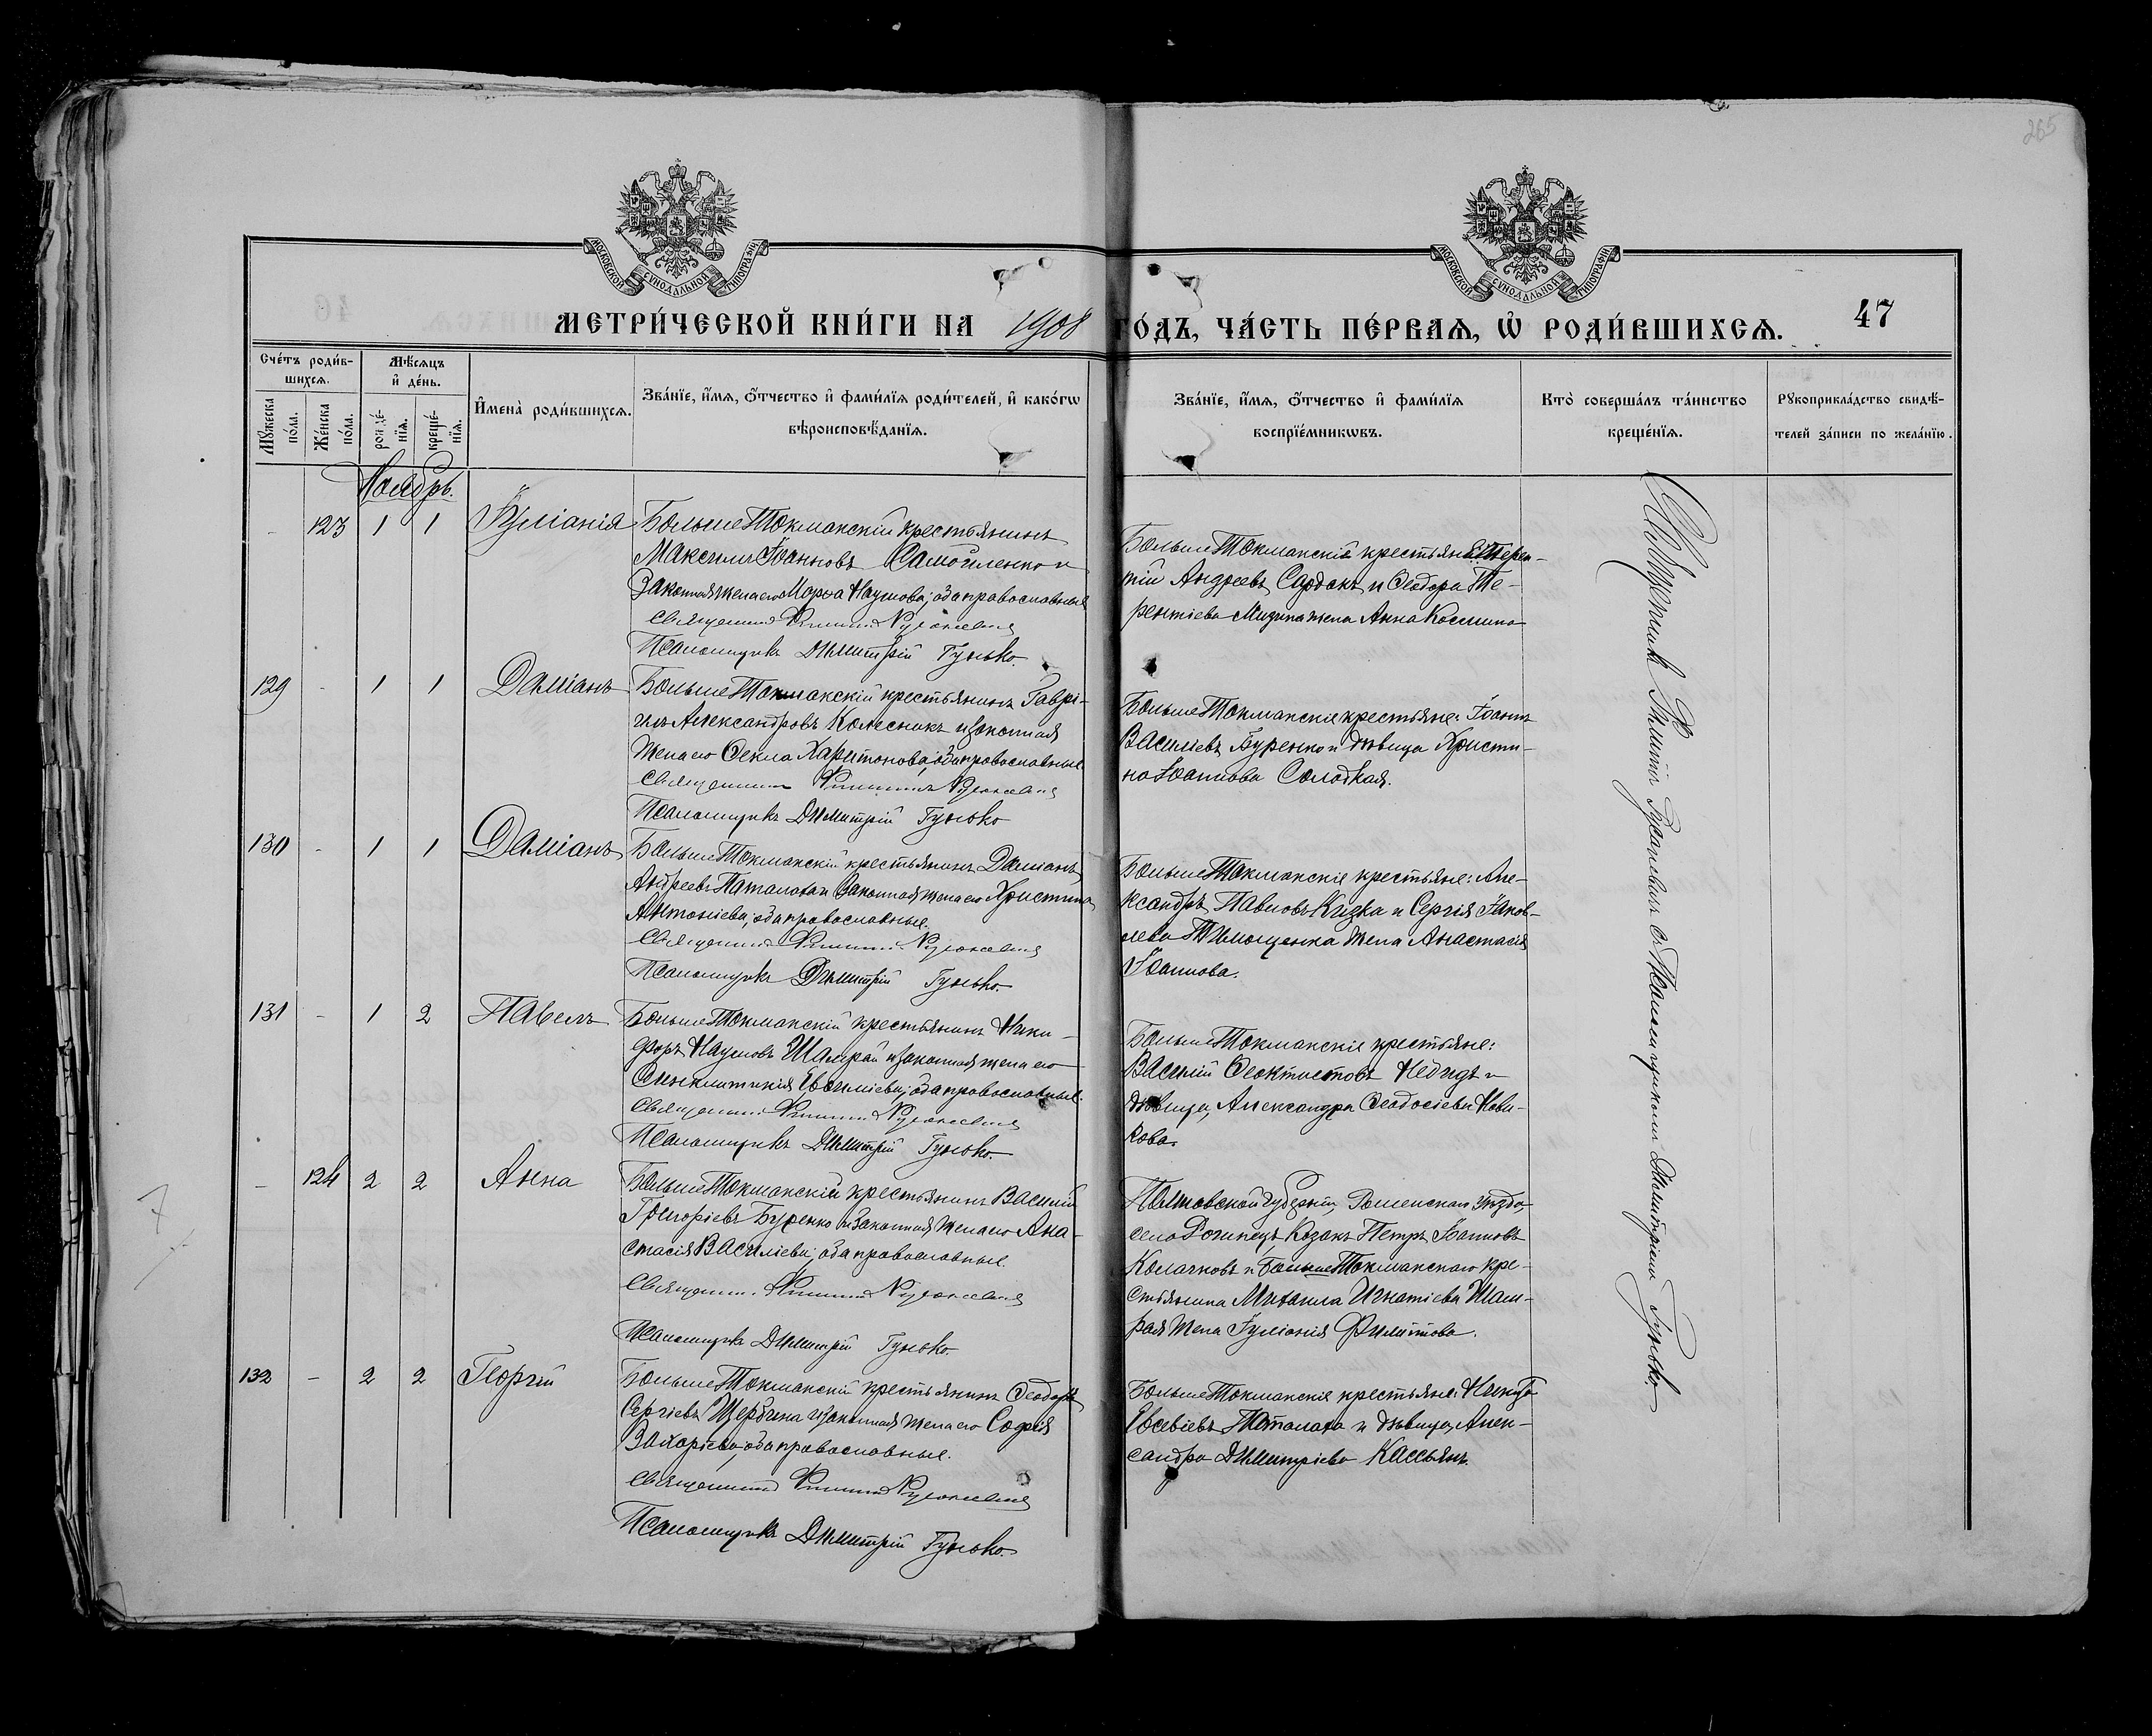 265
МОСКОВСКОЙ СѴНОДАЛЬНОЙ ТИПОГРАФІИ
МОСКОВСКОЙ СѴНОДАЛЬНОЙ ТИПОГРАФІИ
МЕТРИ́ЧЕСКОЙ КНИ́ГИ НА 1908 ГО́ДЪ, ЧА́СТЬ ПЕ́РВАѦ, Ѽ РОДИ́ВШИХСѦ. 47
Сче́тъ роди́в-
шихсѧ.
Мꙋжеска по́ла.
Же́нска по́ла.
Мѣ́сѧцъ
и҆ де́нь.
рожде́-
нїѧ.
креще́-
нїѧ.
И҆мена̀ роди́вшихсѧ.
Зва́нїе, и҆́мѧ, ѻ҆́тчество и҆ фами́лїѧ роди́телей, и҆ како́гѡ
вѣроисповѣ́данїѧ.
Зва́нїе, и҆́мѧ, ѻ҆́тчество и҆ фами́лїѧ
воспрїе́мникѡвъ.
Кто̀ соверша́лъ та́инство
креще́нїѧ.
Рꙋкоприкла́дство свидѣ́-
телей за́писи по жела́нїю.
Ноябрь.
- 123 1 1 Іуліанія
БольшеТокмакскій крестьянинъ
Максимъ Іоанновъ Самойленко и
законная жена его Марѳа Наумова; оба православные
Священникъ Филиппъ
Псаломщикъ Димитрій Гунько.
БольшеТокмакскіе крестьяне: Терен-
тій Андреевъ Сардакъ и Ѳеодора Те-
рентіева жена Анна Космина
129 - 1 1 Даміанъ
БольшеТокмакскій крестьянинъ Гаврі-
илъ Александровъ Колесникъ и законная
жена его Ѳекла Харитонова; оба православные.
Священникъ Филиппъ
Псаломщикъ Димитрій Гунько
БольшеТокмакскіе крестьяне: Іоаннъ
Василіевъ Буренко и дѣвица Христи-
на Іоаннова Солодкая.
130 - 1 1 Даміанъ
БольшеТокмакскій крестьянинъ Даміанъ
Андреевъ Паталаха и законная жена его Христина
Антоніева; оба православные.
Священникъ Филиппъ
Псаломщикъ Димитрій Гунько.
БольшеТокмакскіе крестьяне: Але-
ксандръ Павловъ Кизка и Сергія Іаков-
лева Тимощенка жена Анастасія
Іоаннова.
131 - 1 2 Павелъ
БольшеТокмакскій крестьянинъ Ники-
форъ Наумовъ Шамрай и законная жена его
Синклитикія Евѳиміева; оба православные.
Священникъ Филиппъ
Псаломщикъ Димитрій Гунько.
БольшеТокмакскіе крестьяне:
Василій Ѳеоктистовъ и
дѣвица, Александра Ѳеодосіева Нови-
кова.
- 124 2 2 Анна
БольшеТокмакскій крестьянинъ Василій
Григоріевъ Буренко и законная жена его Ана-
стасія Василіева; оба православные.
Священникъ Филиппъ
Псаломщикъ Димитрій Гунько.
Полтавской губерніи, Роменскаго уѣзда,
села Рогинецъ, Козакъ Петръ Іоанновъ
Колачковъ и БольшеТокмакскаго кре-
стьянина Михаила Игнатіева Шам-
рая жена Іуліанія Филиппова.
132 - 2 2 Георгій
БольшеТокмакскій крестьянинъ Ѳеодоръ
Сергіевъ Щербина и законная жена его Софія
Захаріева; оба православные.
Священникъ Филиппъ
Псаломщикъ Димитрій Гунько.
БольшеТокмакскіе крестьяне: Никита
Евсевіевъ Паталаха и дѣвица, Алек-
сандра Димитріева Касьянъ.
Священникъ Филиппъ съ Псаломщикомъ Димитріемъ Гунько.